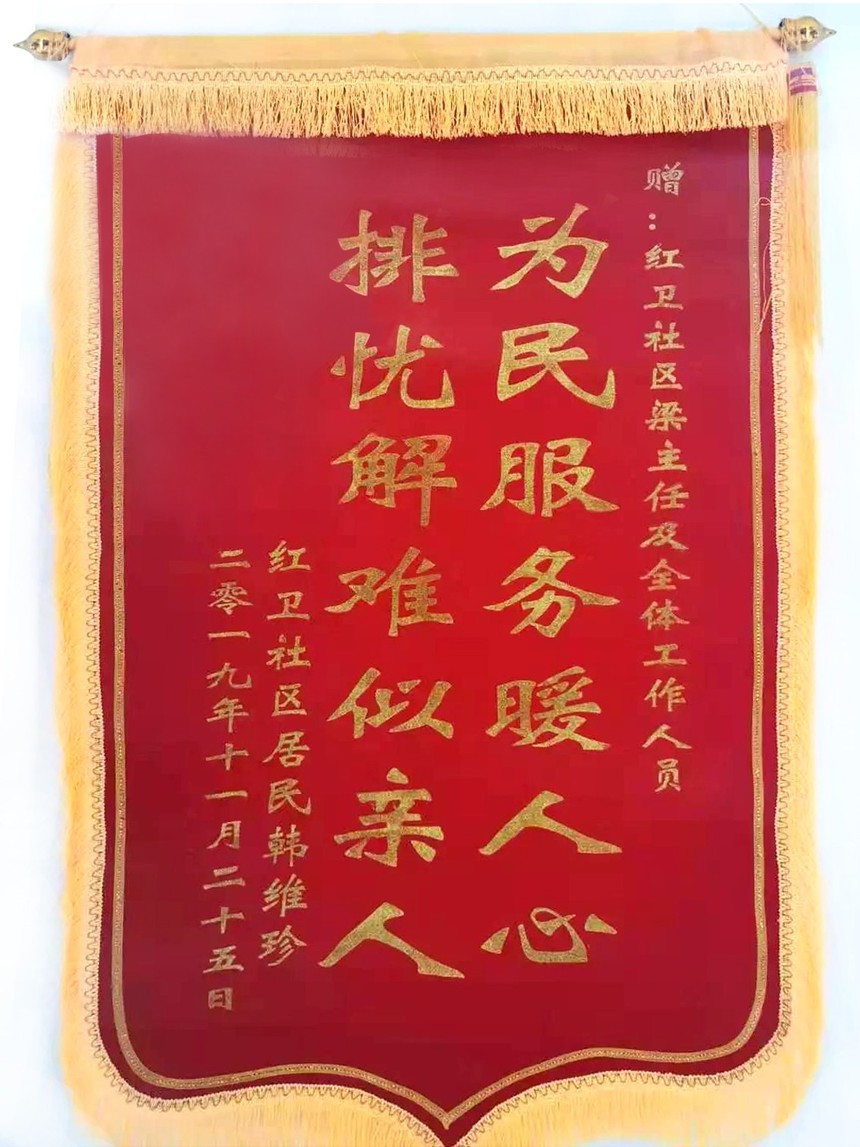 赠：红卫社区梁主任及全体工作人员
为民服务暖人心
排忧解难似亲人
红卫社区居民韩维珍
二零一九年十一月二十五日